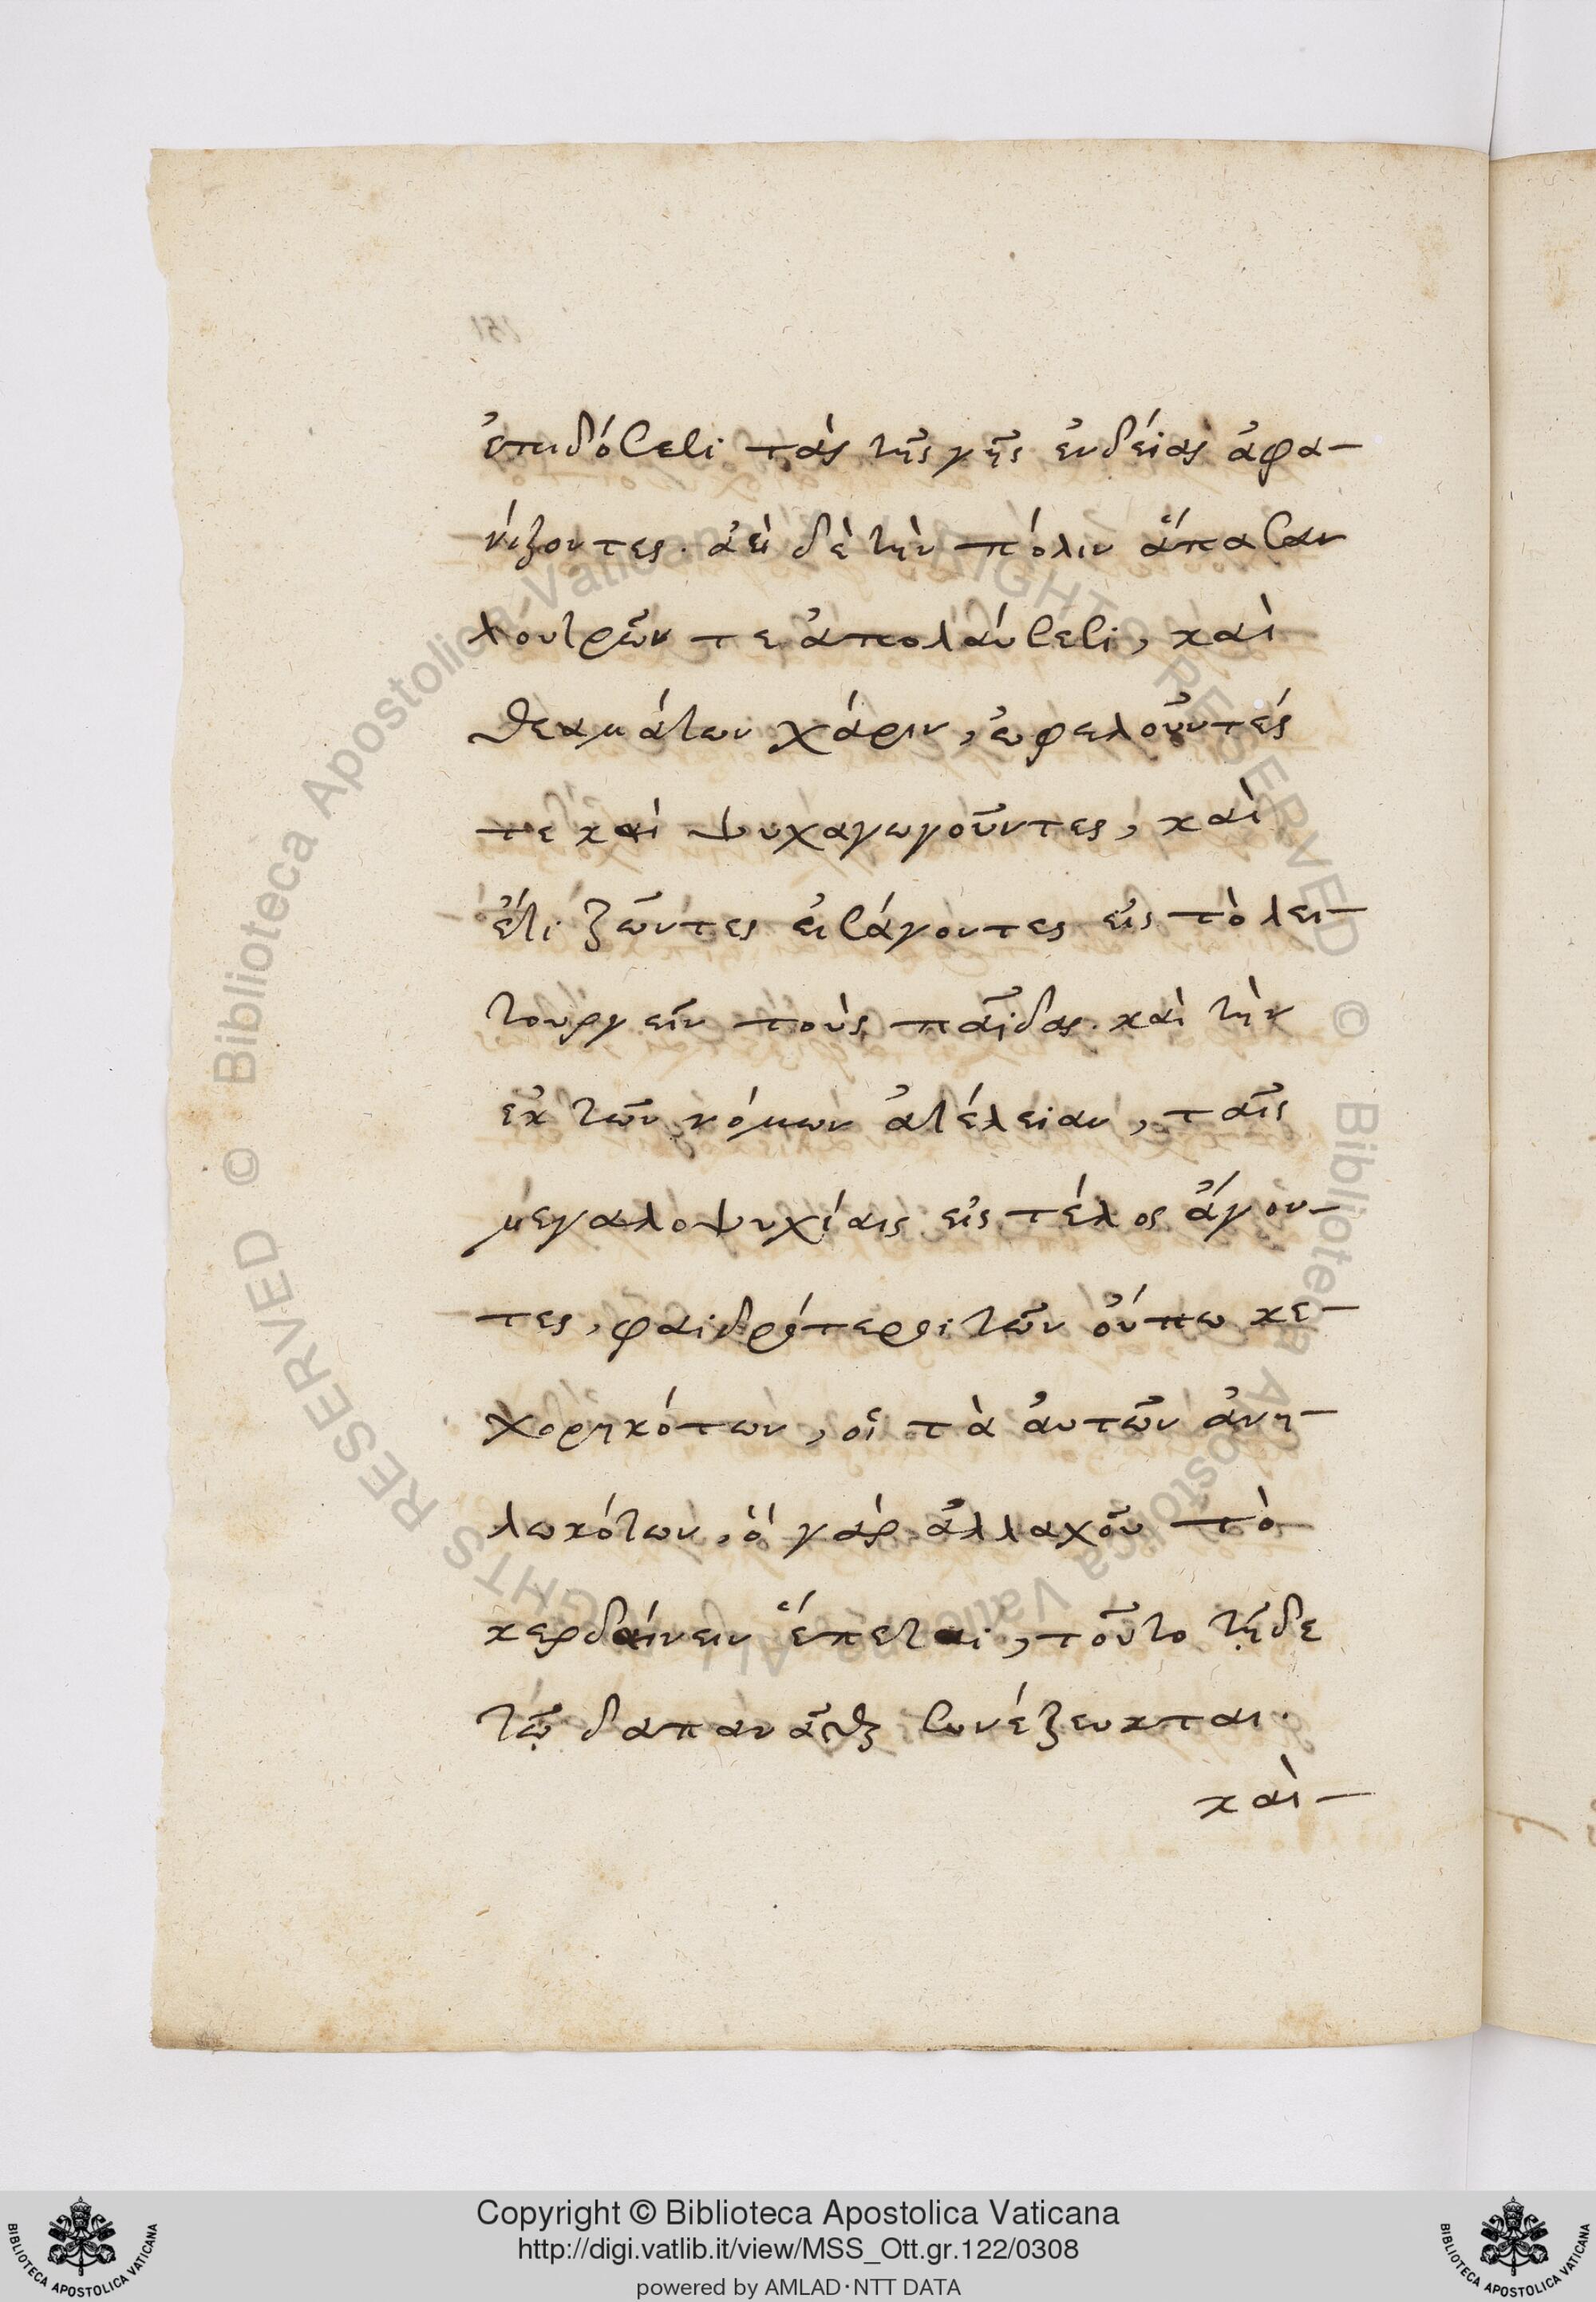 ἐπιδόσεσι τὰς τῆς γῆς ἐνδείας ἀφα-
νίζοντες. ἀεὶ δὲ τὴν πόλιν ἅπασαν
λουτρῶν τε ἀπολαύσεσι, καὶ
θεαμάτων χάριν, ὠφελοῦντές
τε καὶ ψυχαγωγοῦντες, καὶ
ἔτι ζῶντες εἰσάγοντες εἰς τὸ λει-
τουργεῖν τοὺς παῖδας. καὶ τὴν
ἐκ τῶν νόμων ἀτέλειαν, ταῖς
μεγαλοψυχίαις εἰς τέλος ἄγον-
τες, φαιδρότεροι τῶν οὔπω κε-
χορηκότων, οἱ τὰ αὑτῶν ἀνη-
λωκότων, ὃ γὰρ ἀλλαχοῦ τὸ
κερδαίνειν ἕπεται, τοῦτο τῇδε
τῷ δαπανᾶσθαι συνέζευκται.
καὶ-
151
© Biblioteca Apostolica Vaticana ALL RIGHTS RESERVED © Biblioteca Apostolica Vaticana ALL RIGHTS RESERVED
Copyright © Biblioteca Apostolica Vaticana
http://digi.vatlib.it/view/MSS_Ott.gr.122/0308
powered by AMLAD·NTT DATA
BIBLIOTECA APOSTOLICA VATICANA
BIBLIOTECA APOSTOLICA VATICANA